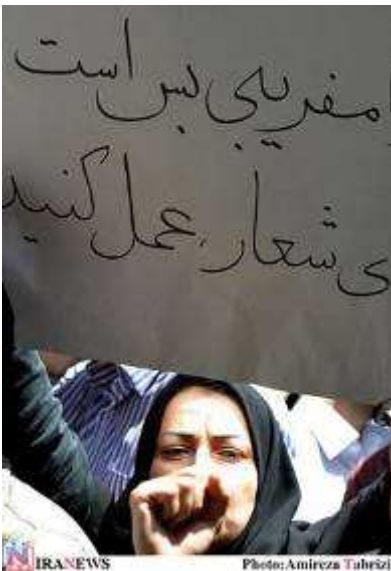 مفریبی بس است
ی شعار، عمل کنید
IRANEWS
Photo: Amireza Tabrizi